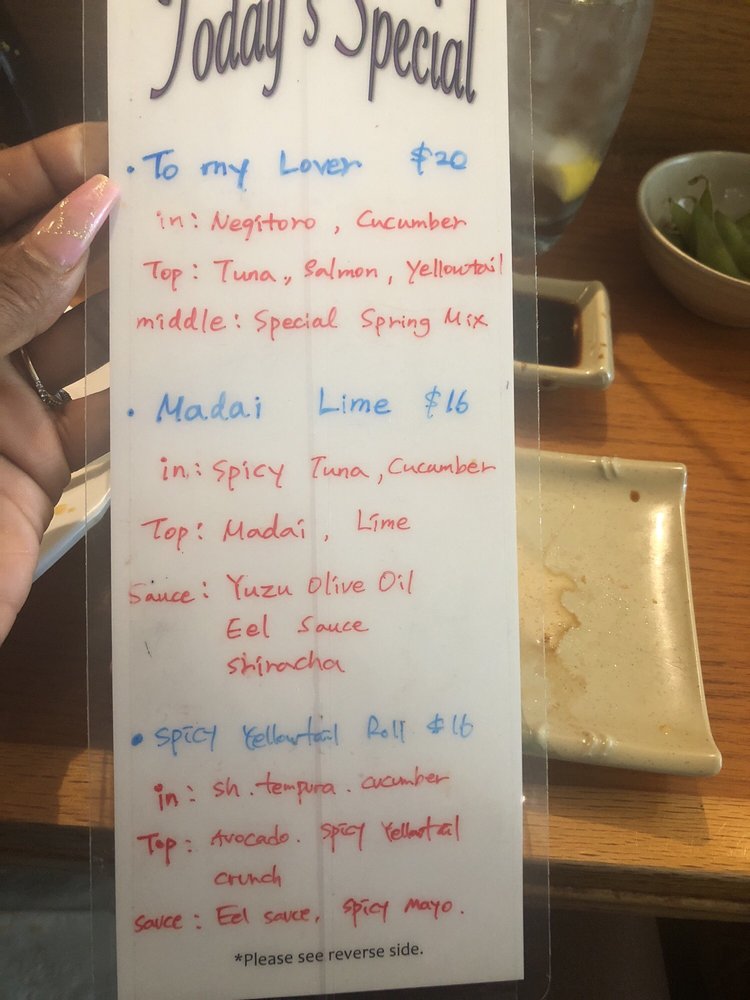 Today's Special
· To my Lover $20
in: Negitoro, Cucumber
Top: Tuna, Salmon, Yellowtail
middle: Special Spring Mix
· Madai Lime $16
in: Spicy Tuna, Cucumber
Top: Madai, Lime
Sauce: Yuzu Olive Oil
Eel Sauce
Shiracha
· Spicy Yellowtail Roll $16
in: sh. tempura. cucumber
Top: Avocado. Spicy Yellowtail
crunch
sauce: Eel sauce, spicy mayo.
*Please see reverse side.